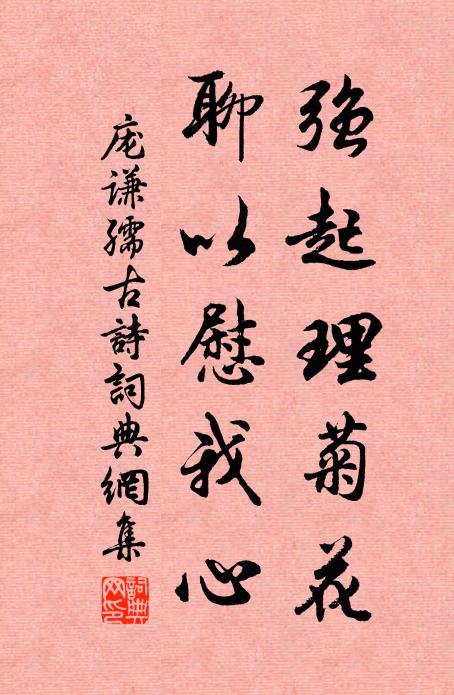 强起理菊花
聊以慰我心
庞谦孺古詩詞典網集
詞典網印